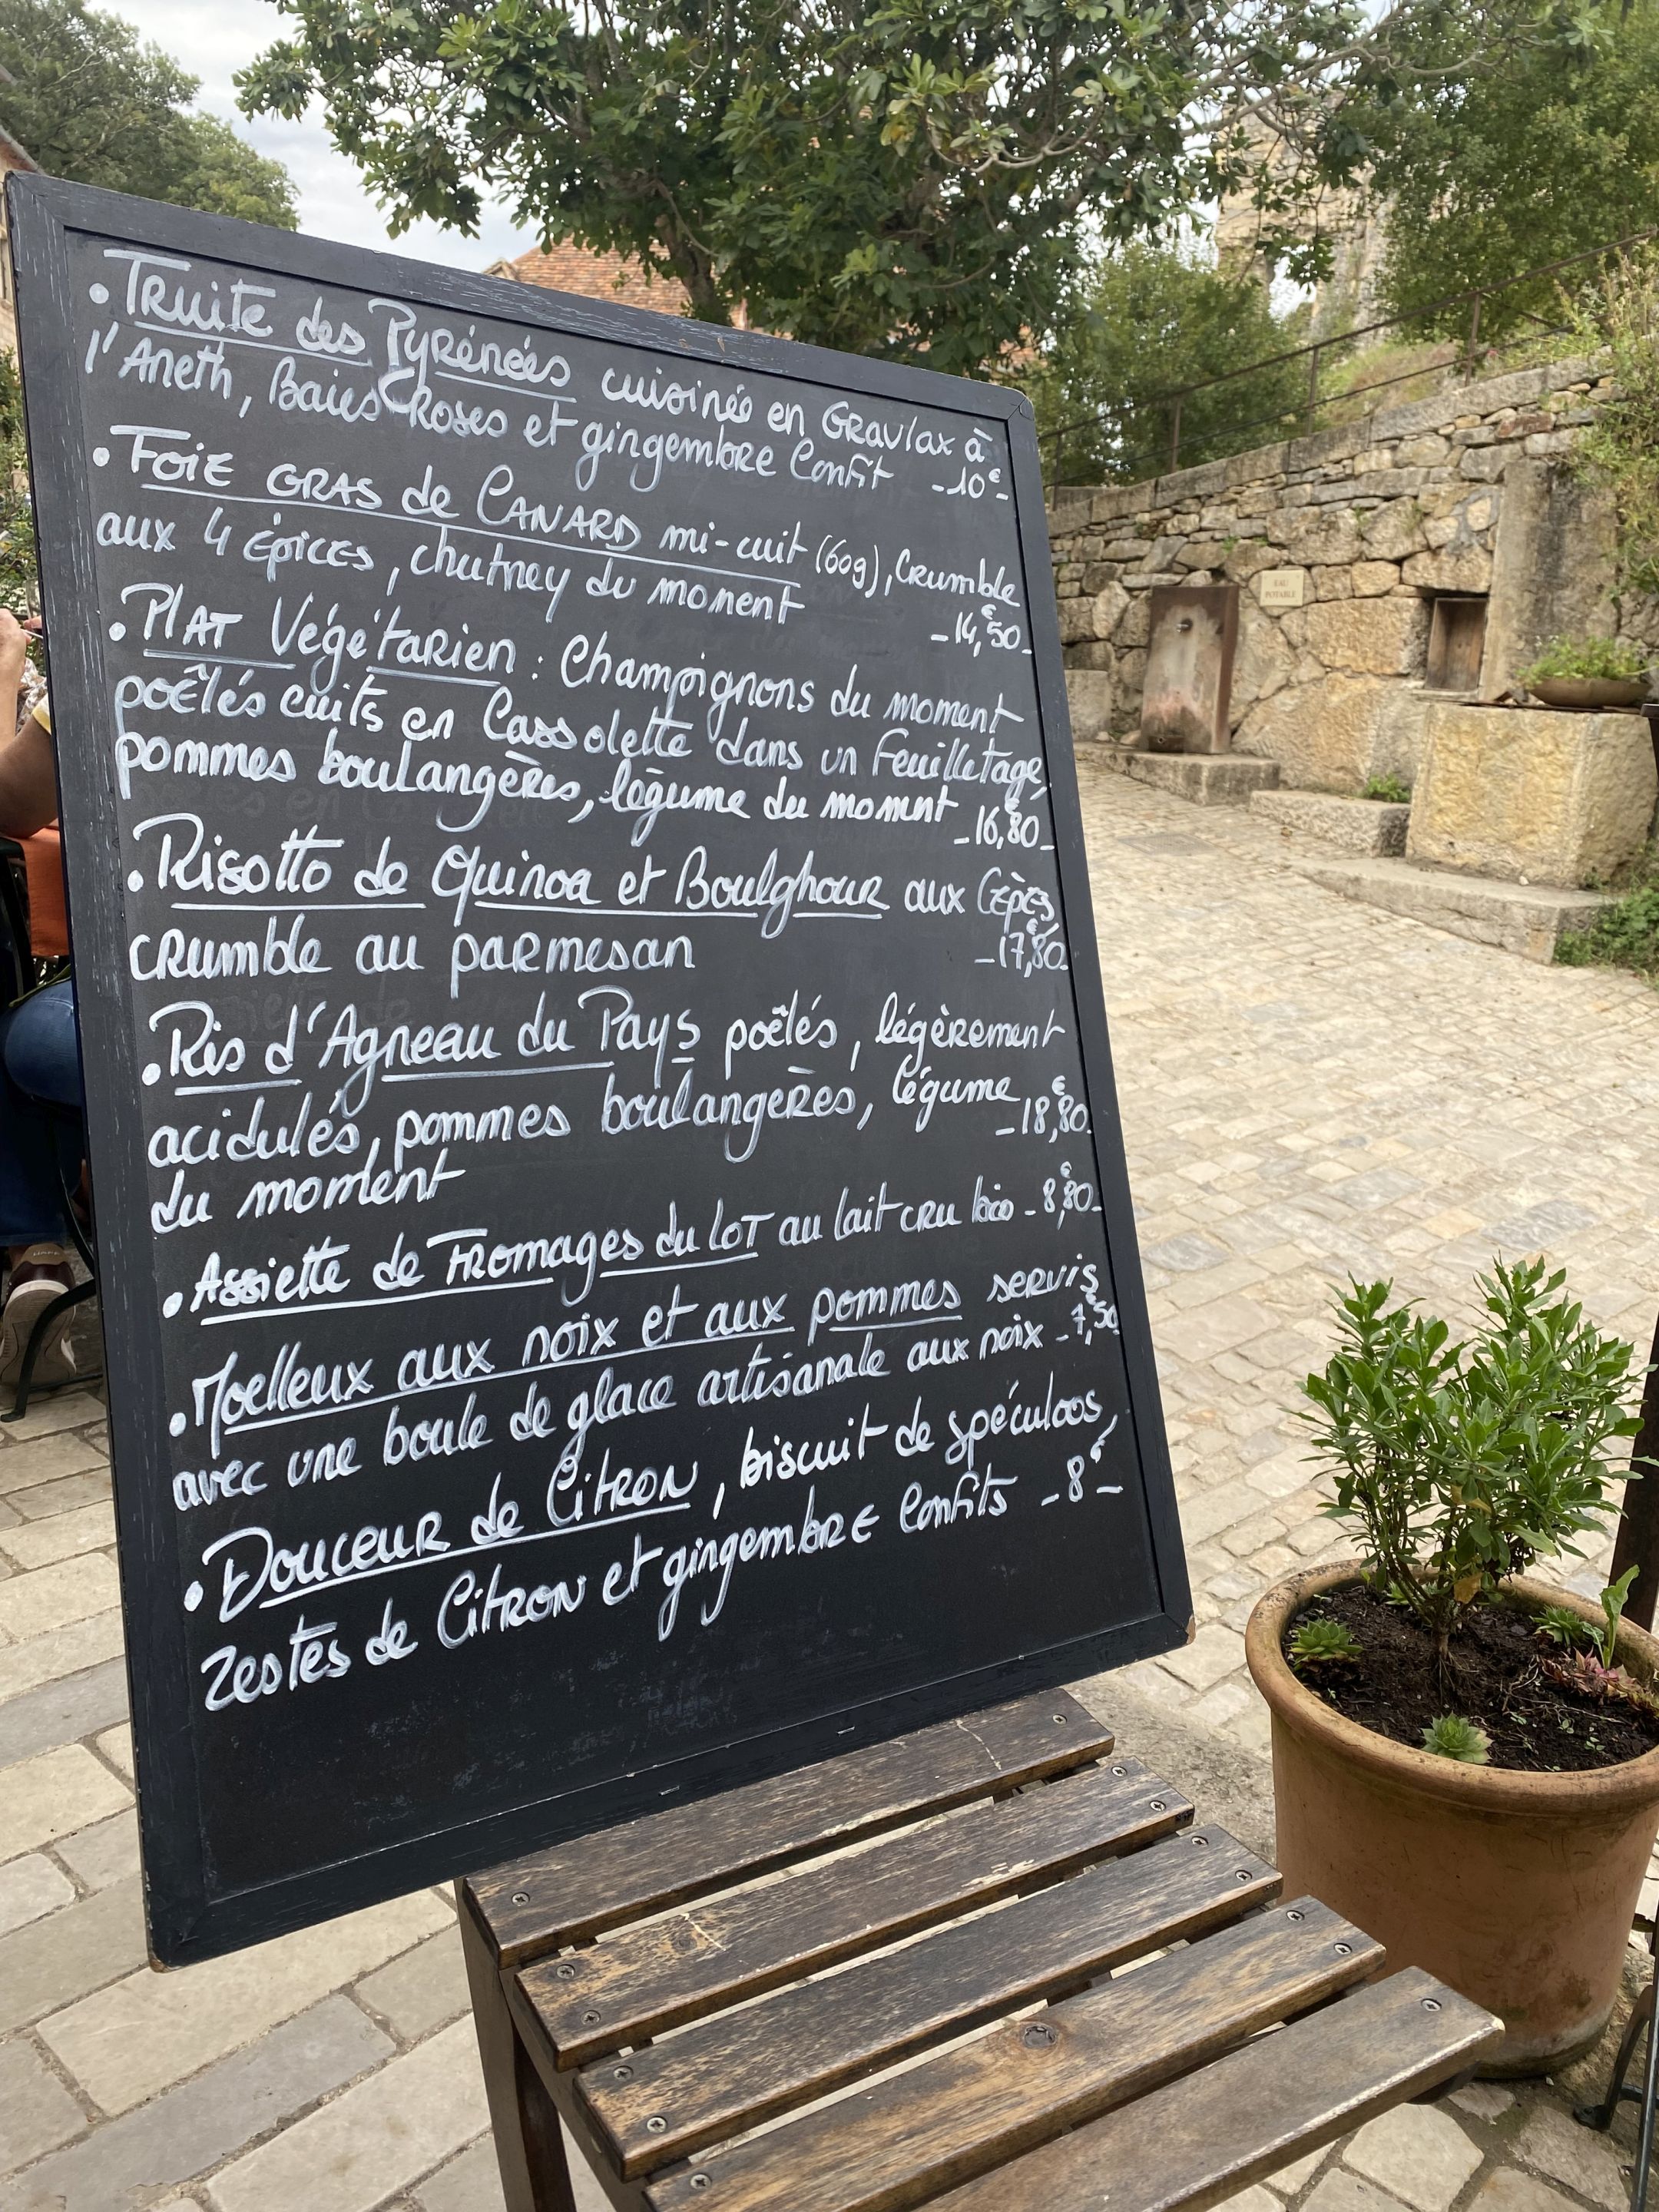 • Truite des Pyrénées cuisinée en Gravlax à
l'Aneth, Baies Roses et gingembre Confit -10€-
• Foie GRAS de CANARD mi-cuit (60g), Crumble
aux 4 épices, chutney du moment -14,€50-
• Plat Végétarien : Champignons du moment
poêlés cuits en Cassolette dans un Feuilletage,
pommes boulangères, légume du moment -16,€80-
• Risotto de Quinoa et Boulghour aux Cèpes,
crumble au parmesan -17,€80-
• Ris d'Agneau du Pays poêlés, légèrement
acidulés, pommes boulangères, légume -18,€80-
du moment
• Assiette de Fromages du LOT au lait cru bio -8,€80-
• Moelleux aux noix et aux pommes servis
avec une boule de glace artisanale aux noix -7,€50
• Douceur de Citron, biscuit de spéculoos,
zestes de Citron et gingembre Confits -8€-
EAU
POTABLE